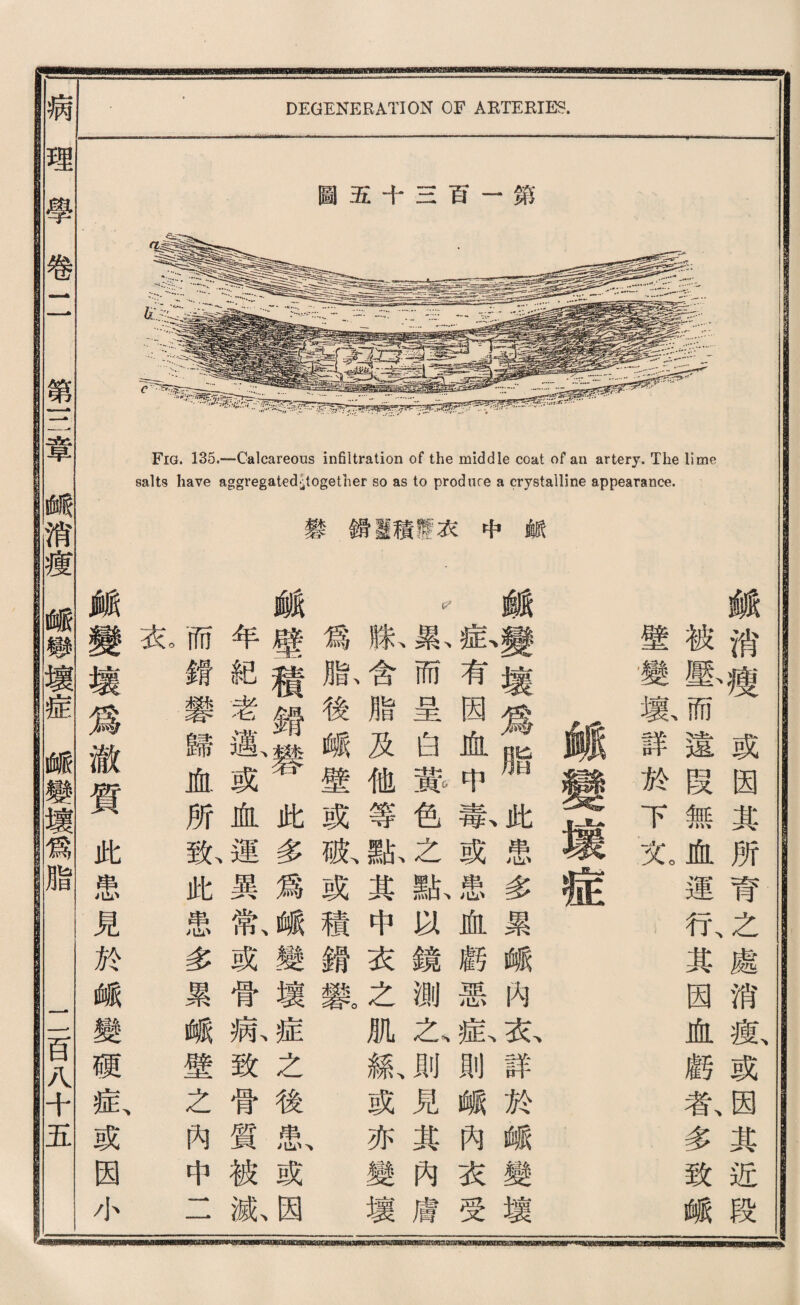 DEGENERATION OF ARTERIES.
第一百三十五圖
a
b
c
FIG. 135.—Calcareous infiltration of the middle coat of an artery. The lime
salts have aggregated together so as to produce a crystalline appearance.
衇中衣積鎉礬
衇消瘦 或因其所育之處消瘦、或因其近段
被壓、而遠段無血運行、其因血虧者、多致衇
壁變壞、詳於下文。
衇變壞症
衇變壞爲脂 此患多累衇內衣、詳於衇變壞
症、有因血中毒、或患血虧惡症、則衇內衣受
累、而呈白黃色之點、以鏡測之、則見其內膚
脒、含脂及他等點、其中衣之肌絲、或亦變壞
爲脂、後衇壁或破、或積鎉礬。
衇壁積鎉礬 此多爲衇變壞症之後患、或因
年紀老邁、或血運異常、或骨病、致骨質被滅、
而鎉礬歸血所致、此患多累衇壁之內中二
衣。
衇變壞爲澈質 此患見於衇變硬症、或因小
病理學 卷二 第三章 衇消瘦 衇變壞症 衇變壞爲脂 二百八十五